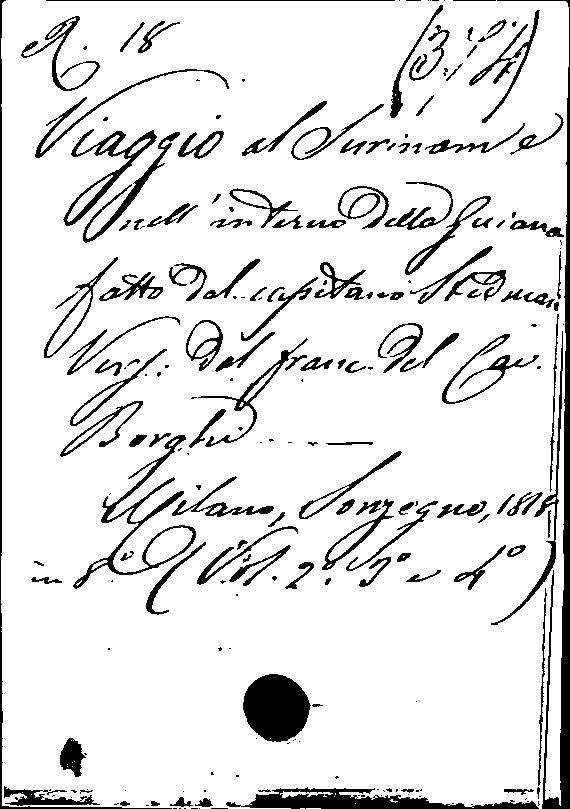 R. 18 (3. 4)
Viaggio al Surinam e
nell' interno della Guiana
fatto dal capitano Stedman
Vers: dal franc. del Cav.
Borghi ..... —
Milano, Sonzogno, 1818
in 8° (Vol. 2° 3° e 4°)